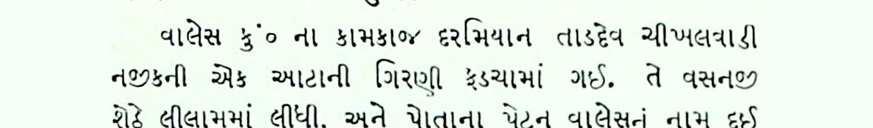 વાલેસ કુંº ના કામકાજ દરમિયાન તાડદેવ ચીખલવાડી
નજીકની એક આટાની ગિરણી ફડચામાં ગઈ. તે વસનજી
શેઠે લીલામમાં લીધી. અને પોતાના પેટન વાલેસનું નામ દઈ